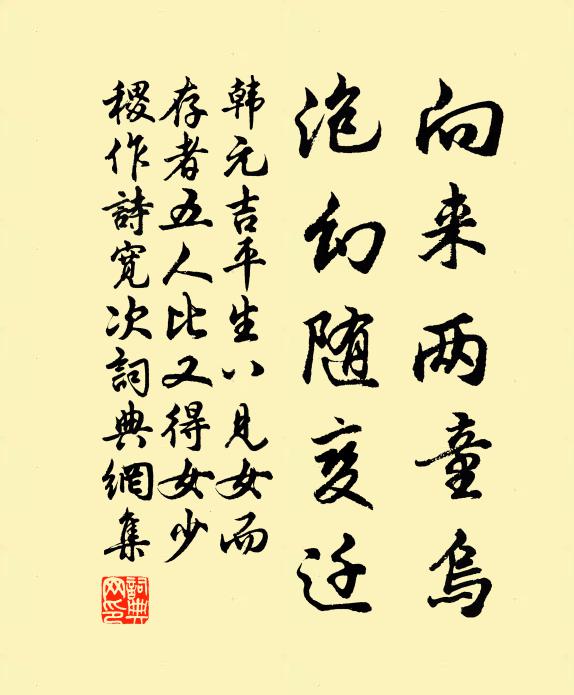 向来两童乌
泡幻随变迁
韩元吉平生八见女而
存者五人比又得女少
稷作詩寛次詞典網集
詞典
网印